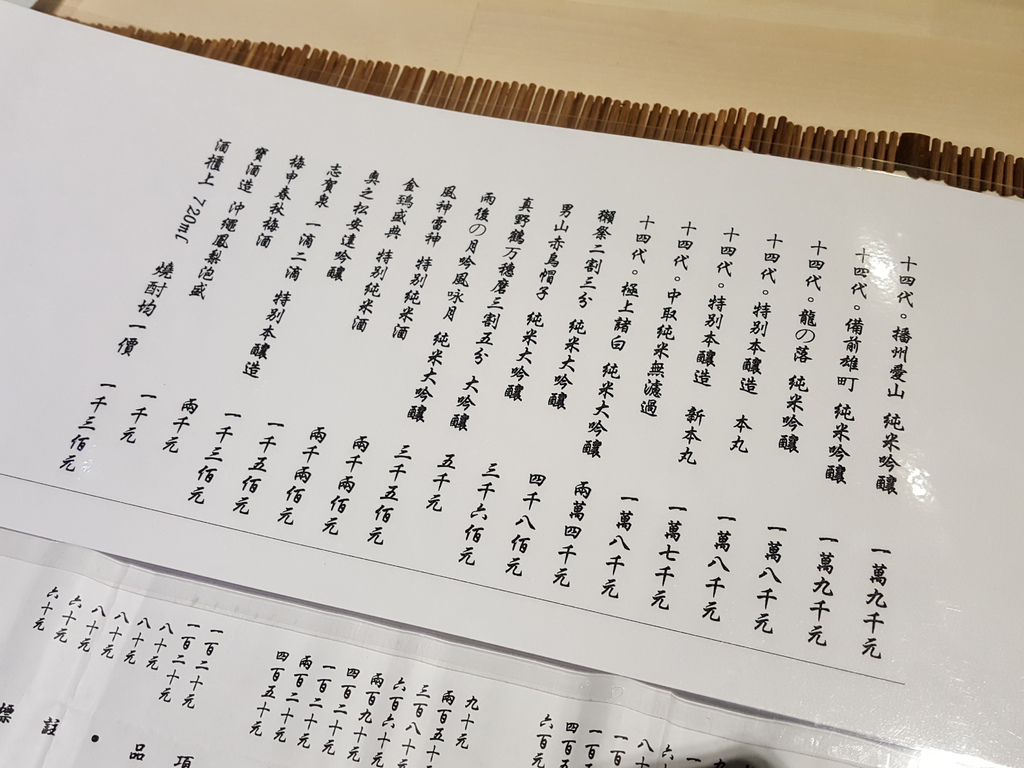 十四代。播州愛山 純米吟釀 一萬九千元
十四代。備前雄町 純米吟釀 一萬九千元
十四代。龍の落 純米吟釀 一萬八千元
十四代。特別本釀造 本丸 一萬八千元
十四代。特別本釀造 新本丸 一萬七千元
十四代。中取純米無濾過 一萬八千元
十四代。極上諸白 純米大吟釀 兩萬四千元
獺祭二割三分 純米大吟釀 四千八佰元
男山赤烏帽子 純米大吟釀 三千六佰元
真野鶴万穗磨三割五分 大吟釀 五千元
雨後の月吟風咏月 純米大吟釀 三千五佰元
風神雷神 特別純米酒 兩千兩佰元
金鵄盛典 特別純米酒 兩千兩佰元
奧之松安達吟釀 一千五佰元
志賀泉 一滴二滴 特別本釀造 一千三佰元
梅申春秋梅酒 兩千元
寶酒造 沖繩鳳梨泡盛 一千元
酒櫃上 720ml 燒酎均一價 一千三佰元
六百元
九十元
兩百五十
三百八十元
六百六十元
兩百九十元
四百二十元
一百二十元
兩百二十元
四百五十元
一百二十元
一百二十元
八十元
八十元
八十元
八十元
六十元
六十元
項
品
•
註
標